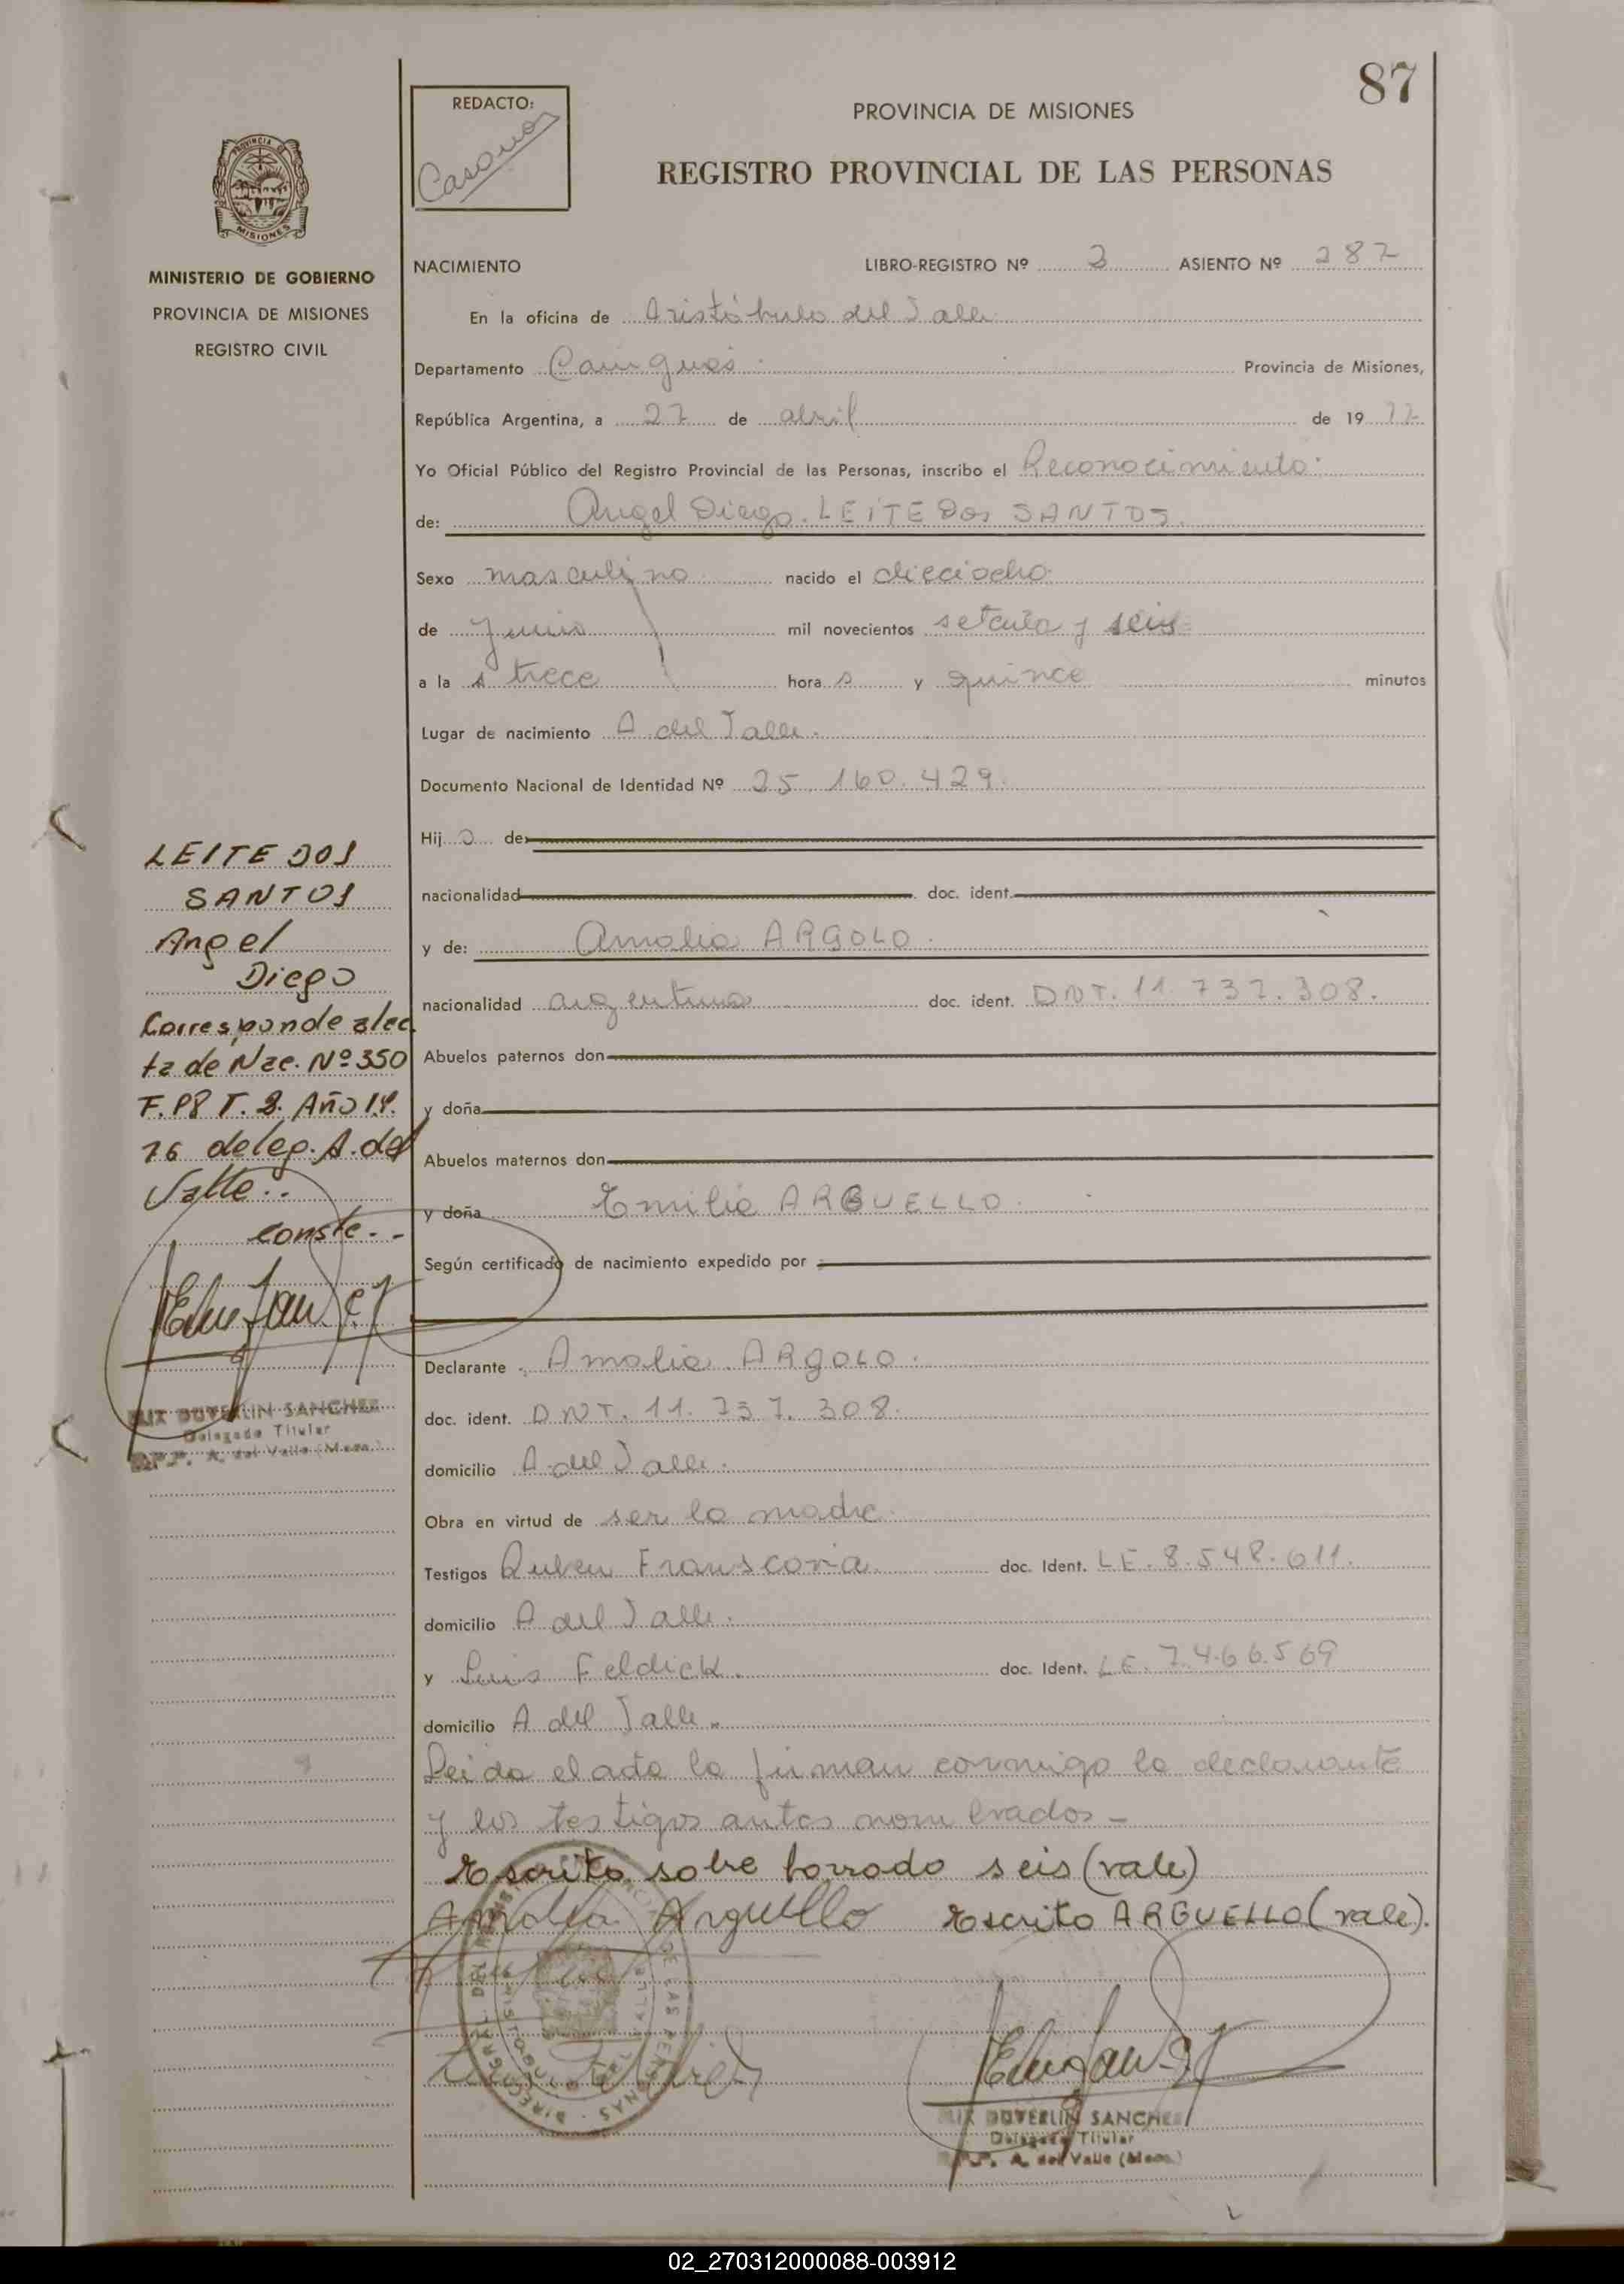 87
REDACTO:
PROVINCIA DE MISIONES
REGISTRO PROVINCIAL DE LAS PERSONAS
PROVINCIA DE
MISIONES
MINISTERIO DE GOBIERNO
PROVINCIA DE MISIONES
REGISTRO CIVIL
NACIMIENTO LIBRO-REGISTRO Nº ASIENTO Nº 287
En la oficina de Aristóbulo del Valle
Departamento Cainguás Provincia de Misiones,
República Argentina, a 27 de abril de 19 77
Yo Oficial Público del Registro Provincial de las Personas, inscribo el Reconocimiento
de: Angel Diego LEITE Dos SANTOS.
Sexo masculino nacido el dieciocho
de Junio mil novecientos setenta y seis
a la s trece hora s y quince minutos
Lugar de nacimiento A del Valle.
Documento Nacional de Identidad Nº 25.160.429.
Hij o de
nacionalidad doc. ident.
y de: Amalia ARGOLO.
nacionalidad argentina doc. ident. DNI. 11.737.308.
Abuelos paternos don
y doña
Abuelos maternos don
y doña Emilia ARGUELLO.
Según certificado de nacimiento expedido por
Declarante Amalia ARGOLO.
doc. ident. DNI. 11.737.308.
domicilio A del Valle.
Obra en virtud de ser la madre.
Testigos Ruben doc. Ident. LE. 8.548.011.
domicilio A del Valle.
y Luis Feldick. doc. Ident. LE. 7.466.569
domicilio A del Valle.
Leida el acta la firman conmigo la declarante
y los testigos antes nombrados -
Escrito sobre borrado seis (vale)
Amalia Arguello Escrito ARGUELLO (vale).
LEITE DOS
SANTOS
Angel
Diego
Corresponde al ac
ta de Nac. Nº 350
F. 88 T. 2. Año 19
76 deleg. A. del
Valle..
conste.-
DUVERLIN SANCHEZ
Delegado Titular
A. del Valle (Mnes.)
DUVERLIN SANCHEZ
Delegado Titular
A. del Valle (Mnes.)
02_270312000088-003912